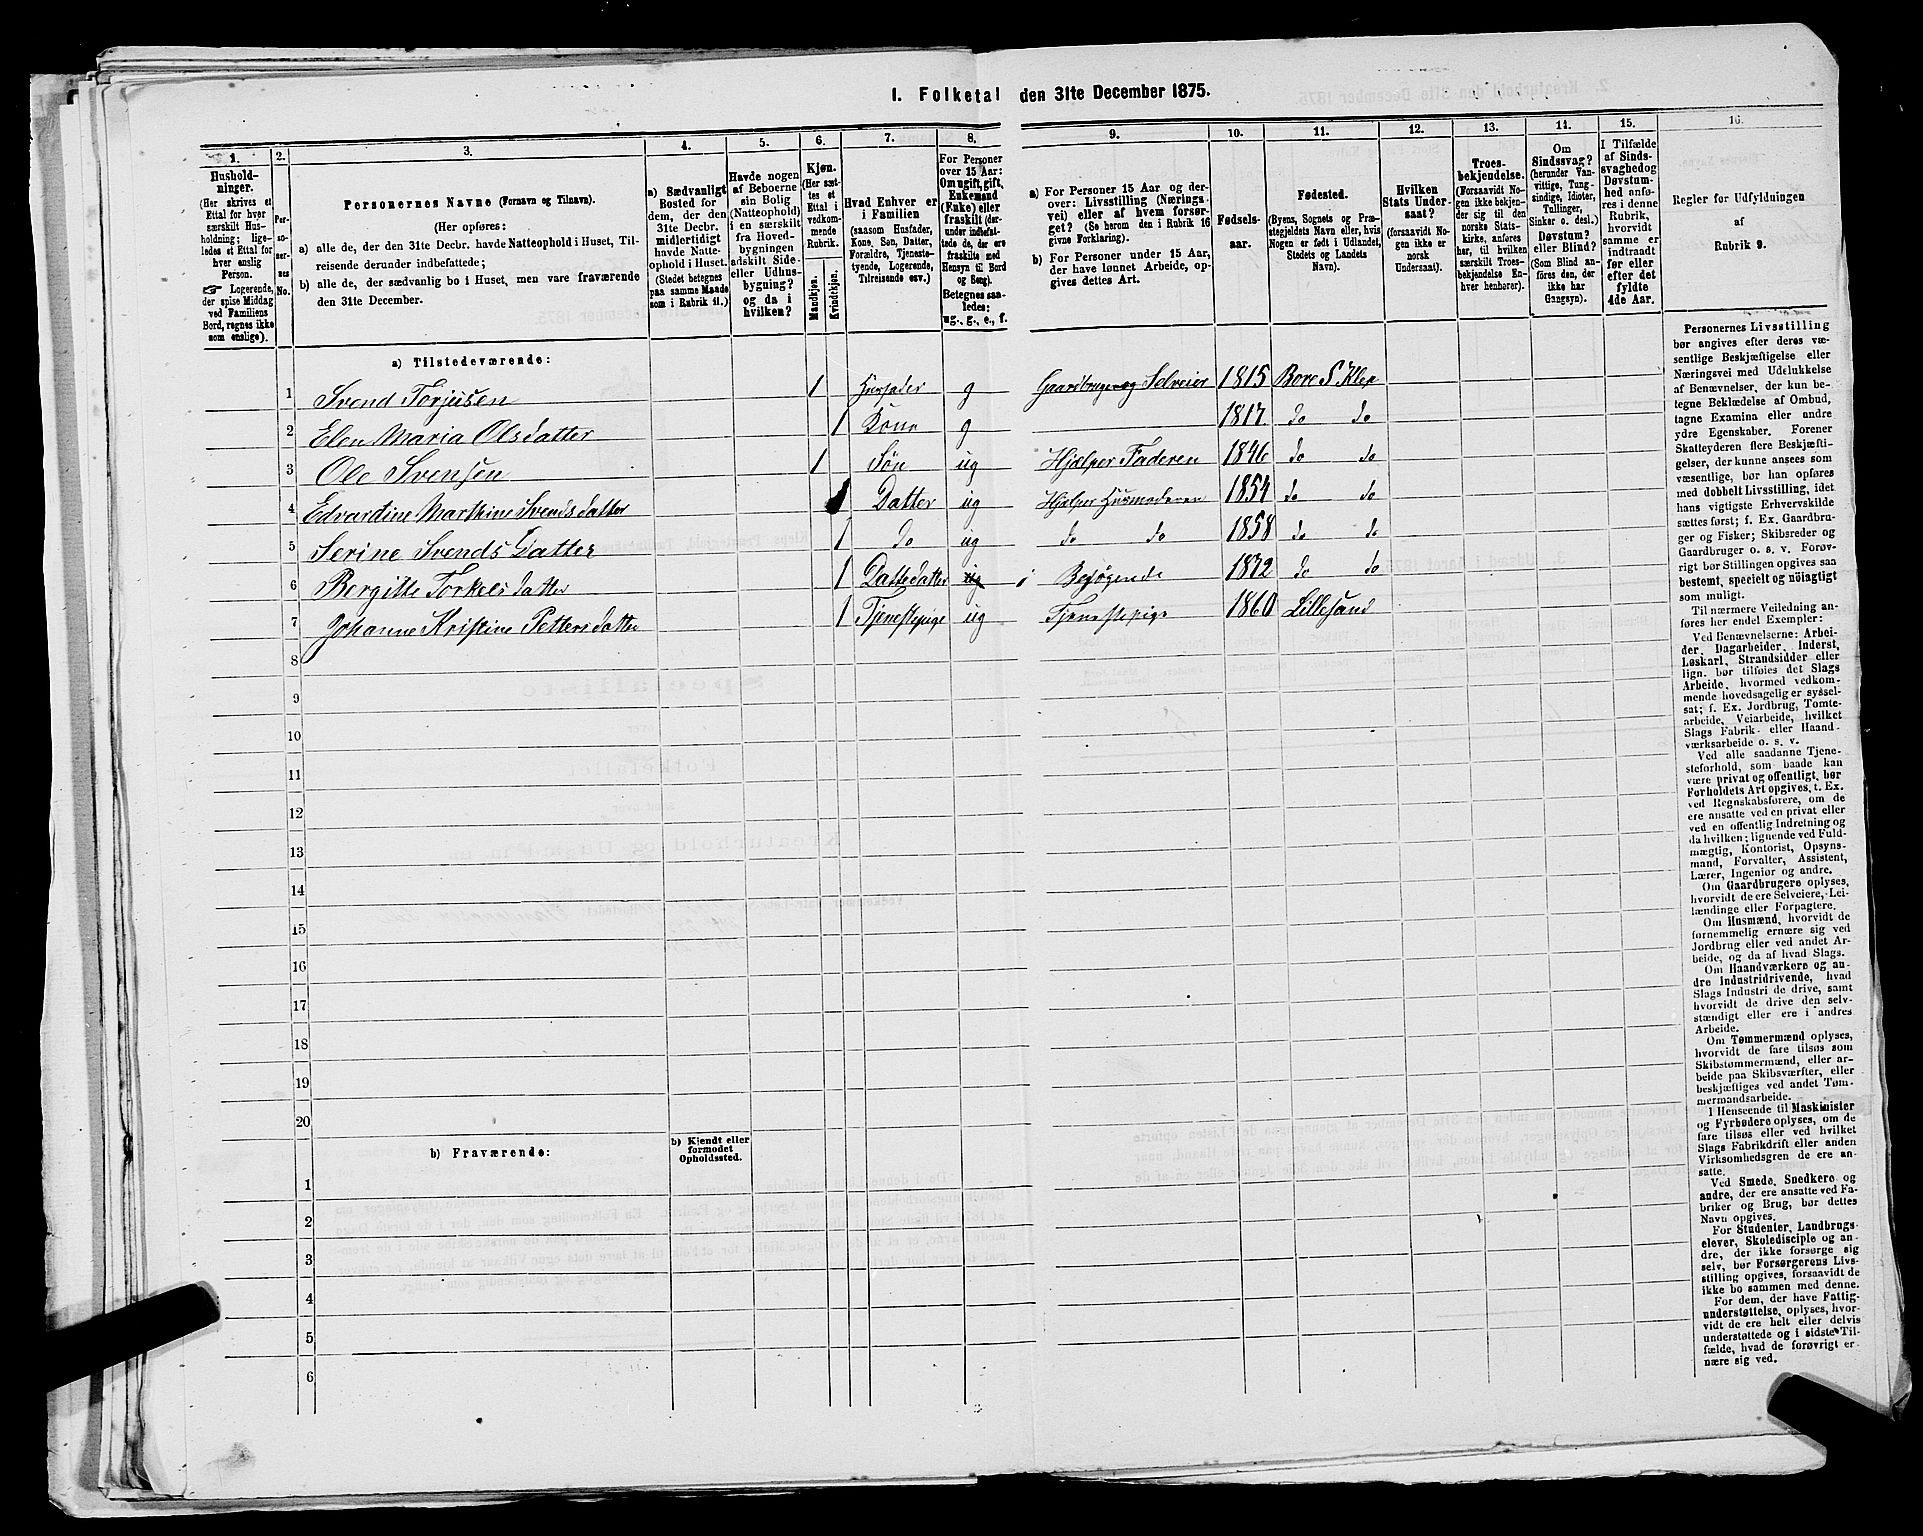 1. Folketal den 31te December 1875.
1. 2. 3. 4. 5. 6. 7. 8. 9. 10. 11. 12. 13. 14. 15. 16.
Husholdninger.
(Her skrives et
Ettal for hver
særskilt Husholdning;
ligeledes et Ettal for
hver enslig
Person.
☞ Logerende,
der spise Middag
ved Familiens
Bord, regnes ikke
som enslige).
Personernes No.
Personernes Navne (Fornavn og Tilnavn).
(Her opføres:
a) alle de, der den 31te Decbr. havde Natteophold i Huset, Tilreisende derunder indbefattede;
b) alle de, der sædvanlig bo i Huset, men vare fraværende
den 31te December.
a) Sædvanligt
Bosted for
dem, der den
31te Decbr.
midlertidigt
havde Natteophold i Huset.
(Stedet betegnes
paa samme Maade
som i Rubrik 11.)
Havde nogen
af Beboerne
sin Bolig
(Natteophold)
i en særskilt
fra Hovedbygningen
adskilt Side-
eller Udhusbygning?
og da i
hvilken?
Kjøn.
(Her sættes et
Ettal i
vedkommende
Rubrik.
Mandkjøn. Kvindekjøn.
Hvad Enhver er
i Familien
(saasom Husfader,
Kone, Søn, Datter,
Forældre, Tjenestetyende, Logerende,
Tilreisende osv.)
For Personer
over 15 Aar:
Om ugift, gift,
Enkemand
(Enke) eller
fraskilt (derunder indbefattede de, der ere
fraskilte med
Hensyn til Bord
og Seng).
Betegnes saaledes:
ug., g., e., f.
a) For Personer 15 Aar og derover: Livsstilling (Næringsvei) eller af hvem forsørget? (Se herom den i Rubrik 16
givne Forklaring).
b) For Personer under 15 Aar,
der have lønnet Arbeide, opgives dettes Art.
Fødselsaar.
Fødested.
(Byens, Sognets og Præstegjeldets Navn eller, hvis
Nogen er født i Udlandet,
Stedets og Landets
Navn).
Hvilken
Stats Undersaat?
(forsaavidt Nogen ikke er
norsk
Undersaat).
Troesbekjendelse.
(Forsaavidt Nogen ikke bekjender sig til den
norske Statskirke, anføres
her, til hvilken
særskilt Troesbekjendelse Enhver henhører).
Om
Sindssvag?
(herunder Vanvittige, Tungsindige, Idioter,
Tullinger,
Sinker o. desl.)
Døvstum?
eller Blind? (Som Blind anføres den, der
ikke har
Gangsyn).
I Tilfælde
af Sindssvaghed og
Døvstumhed anføres i denne
Rubrik,
hvorvidt
samme er
indtraadt
før eller
efter det
fyldte
4de Aar.
Regler for Udfyldningen
af
Rubrik 9.
a) Tilstedeværende:
1 Svend Torjusen 1 Husfader g Gaardbruger og Selveier 1815 Bore S Klep
2 Elen Maria Olsdatter 1 Kone g 1817 do do
3 Ole Svensen 1 Søn ug Hjælper Faderen 1846 do do
4 Edvardine Marthine Svendsdatter 1 Datter ug Hjælper Husmoderen 1854 do do
5 Serine Svends Datter 1 do ug do do 1858 do do
6 Bergitte Torkelsdatter 1 Dattedatter ug i Besøgende 1872 do do
7 Johanne Kristine Pettersdatter 1 Tjenestepige ug Tjenestepige 1860 Lillesand
8
9
10
11
12
13
14
15
16
17
18
19
20
b) Fraværende:
b) Kjendt eller
formodet
Opholdssted.
1
2
3
4
5
6
Personernes Livsstilling
bør angives efter deres væsentlige Beskjæftigelse eller
Næringsvei med Udelukkelse
af Benævnelser, der kun betegne Beklædelse af Ombud,
tagne Examina eller andre
ydre Egenskaber. Forener
Skatteyderen flere Beskjæftigelser, der kunne ansees som
væsentlige, bør han opføres
med dobbelt Livsstilling, idet
hans vigtigste Erhvervskilde
sættes først; f. Ex. Gaardbruger og Fisker; Skibsreder og
Gaardbruger o. s. v. Forøvrigt bør Stillingen opgives saa
bestemt, specielt og nöiagtigt
som muligt.
Til nærmere Veiledning anføres her endel Exempler:
Ved Benævnelserne: Arbeider, Dagarbeider, Inderst,
Løskarl, Strandsidder eller
lign. bør tilføies det Slags
Arbeide, hvormed vedkommende hovedsagelig er sysselsat; f. Ex. Jordbrug, Tomtearbeide, Veiarbeide, hvilket
Slags Fabrik- eller Haandværksarbeide o. s. v.
Ved alle saadanne Tjenesteforhold, som baade kan
være privat og offentligt, bør
Forholdets Art opgives, t. Ex.
ved Regnskabsførere, om de
ere ansatte ved en privat eller
ved en offentlig Indretning og
da hvilken; lignende ved Fuldmægtig, Kontorist, Opsynsmand, Forvalter, Assistent,
Lærer, Ingeniør og andre.
Om Gaardbrugere oplyses,
hvorvidt de ere Selveiere, Leilændinge eller Forpagtere.
Om Husmænd, hvorvidt de
fornemmelig ernære sig ved
Jordbrug eller ved andet Arbeide, og da af hvad Slags.
Om Haandværkere og andre Industridrivende, hvad
Slags Industri de drive, samt
hvorvidt de drive den selvstændigt eller ere i andres
Arbeide.
Om Tømmermænd oplyses,
hvorvidt de fare tilsøs som
Skibstømmermænd, eller arbeide paa Skibsværfter, eller
beskjæftiges ved andet Tømmermandsarbeide.
I Henseende til Maskinister
og Fyrbødere oplyses, om de
fare tilsøs eller ved hvilket
Slags Fabrikdrift eller anden
Virksomhedsgren de ere ansatte.
Ved Smede, Snedkere og
andre, der ere ansatte ved Fabriker og Brug, bør dettes
Navn opgives.
For Studenter, Landbrugselever, Skoledisciple og andre, der ikke forsørge sig
selv, bør Forsørgerens Livsstilling opgives, forsaavidt de
ikke bo sammen med denne.
For dem, der have Fattigunderstøttelse, oplyses, hvorvidt de ere helt eller delvis
understøttede og i sidste Tilfælde, hvad de forøvrigt ernære sig ved.